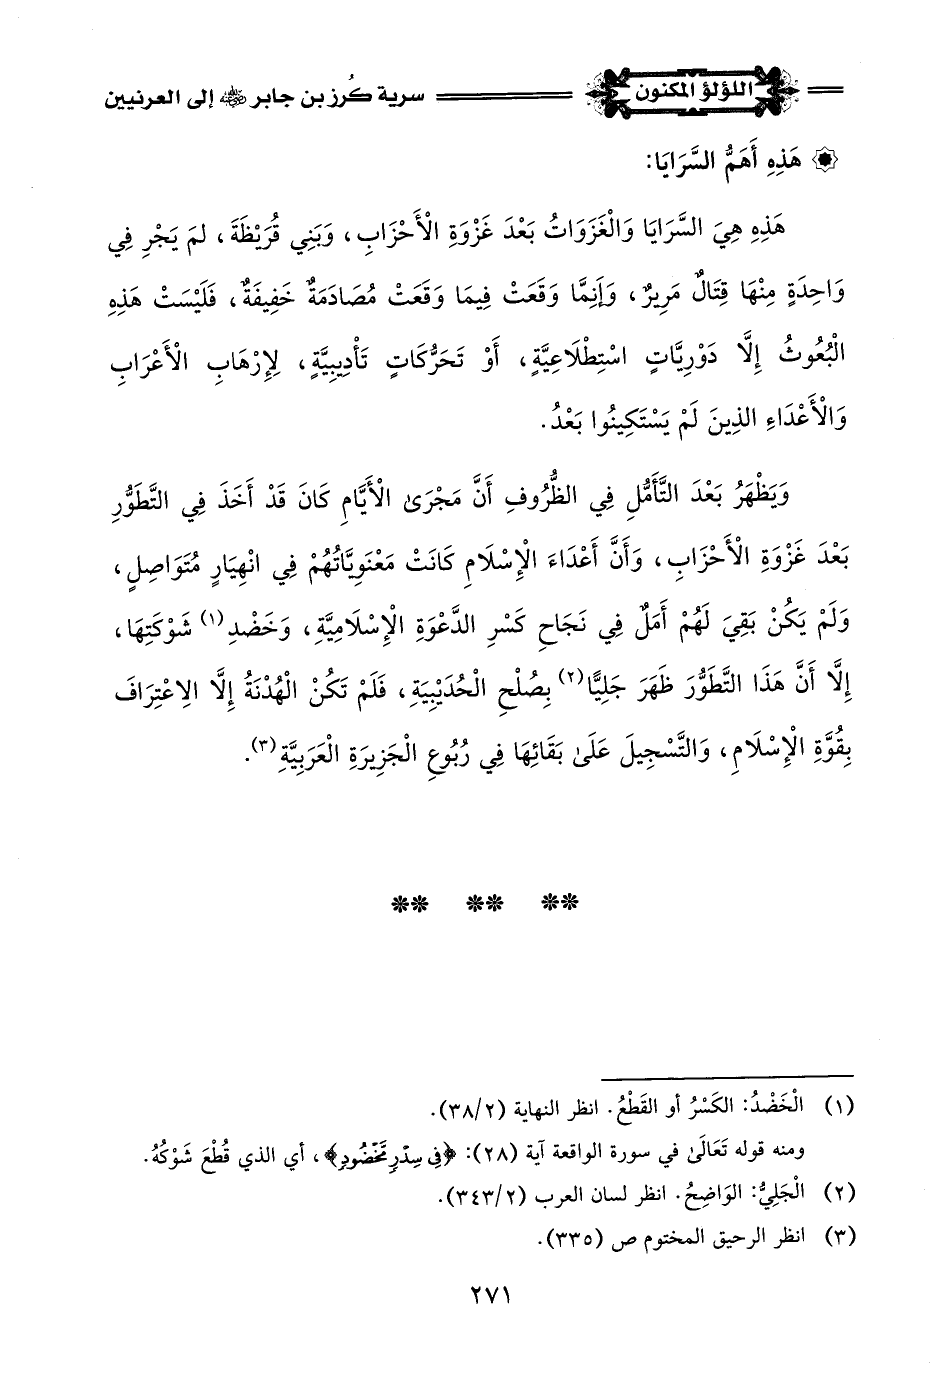 اللؤلؤ المكنون سرية كُرز بن جابر ﷺ إلى العرنيين
هَذِهِ أَهَمُّ السَّرَايَا:
هَذِهِ هِيَ السَّرَايَا وَالْغَزَوَاتُ بَعْدَ غَزْوَةِ الْأَحْزَابِ، وَبَنِي قُرَيْظَةَ، لَمْ يَجْرِ فِي
وَاحِدَةٍ مِنْهَا قِتَالٌ مَرِيرٌ، وَإِنَّمَا وَقَعَتْ فِيمَا وَقَعَتْ مُصَادَمَةٌ خَفِيفَةٌ، فَلَيْسَتْ هَذِهِ
الْبُعُوثُ إِلَّا دَوْرِيَّاتٍ اسْتِطْلَاعِيَّةٍ، أَوْ تَحَرُّكَاتٍ تَأْدِيبِيَّةٍ، لِإِرْهَابِ الْأَعْرَابِ
وَالْأَعْدَاءِ الذِينَ لَمْ يَسْتَكِينُوا بَعْدُ.
وَيَظْهَرُ بَعْدَ التَّأَمُّلِ فِي الظُّرُوفِ أَنَّ مَجْرَىٰ الْأَيَّامِ كَانَ قَدْ أَخَذَ فِي التَّطَوُّرِ
بَعْدَ غَزْوَةِ الْأَحْزَابِ، وَأَنَّ أَعْدَاءَ الْإِسْلَامِ كَانَتْ مَعْنَوِيَّاتُهُمْ فِي انْهِيَارٍ مُتَوَاصِلٍ،
وَلَمْ يَكُنْ بَقِيَ لَهُمْ أَمَلٌ فِي نَجَاحِ كَسْرِ الدَّعْوَةِ الْإِسْلَامِيَّةِ، وَخَضْدِ (١) شَوْكَتِهَا،
إِلَّا أَنَّ هَذَا التَّطَوُّرَ ظَهَرَ جَلِيًّا (٢) بِصُلْحِ الْحُدَيْبِيَةِ، فَلَمْ تَكُنْ الْهُدْنَةُ إِلَّا الِاعْتِرَافَ
بِقُوَّةِ الْإِسْلَامِ، وَالتَّسْجِيلَ عَلَىٰ بَقَائِهَا فِي رُبُوعِ الْجَزِيرَةِ الْعَرَبِيَّةِ (٣).
(١) الْخَضْدُ: الكَسْرُ أو القَطْعُ. انظر النهاية (٢/ ٣٨).
ومنه قوله تَعَالَىٰ في سورة الواقعة آية (٢٨): ﴿فِى سِدْرٍ مَّخْضُودٍ﴾، أي الذي قُطْعَ شَوْكُهُ.
(٢) الْجَلِيُّ: الوَاضِحُ. انظر لسان العرب (٢/ ٣٤٣).
(٣) انظر الرحيق المختوم ص (٣٣٥).
٢٧١